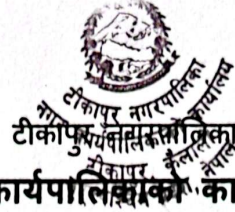 टीकापुर नगरपालिका
नगर कार्यपालिकाको कार्यालय
टीकापुर, कैलाली
नेपाल
टीकापुर नगरपालिका
कार्यपालिकाको का